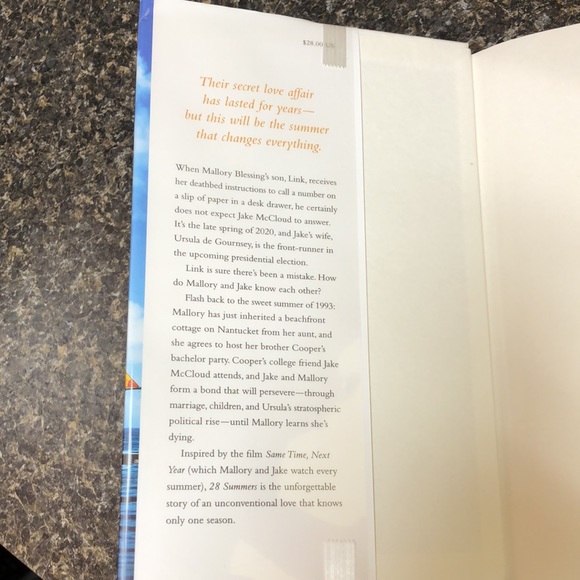 $28.00
Their secret love affair
has lasted for years—
but this will be the summer
that changes everything.
When Mallory Blessing's son, Link, receives
her deathbed instructions to call a number on
a slip of paper in a desk drawer, he certainly
does not expect Jake McCloud to answer.
It's the late spring of 2020, and Jake's wife,
Ursula de Gournsey, is the front-runner in
the upcoming presidential election.
Link is sure there's been a mistake. How
do Mallory and Jake know each other?
Flash back to the sweet summer of 1993:
Mallory has just inherited a beachfront
cottage on Nantucket from her aunt, and
she agrees to host her brother Cooper's
bachelor party. Cooper's college friend Jake
McCloud attends, and Jake and Mallory
form a bond that will persevere—through
marriage, children, and Ursula's stratospheric
political rise—until Mallory learns she's
dying.
Inspired by the film Same Time, Next
Year (which Mallory and Jake watch every
summer), 28 Summers is the unforgettable
story of an unconventional love that knows
only one season.